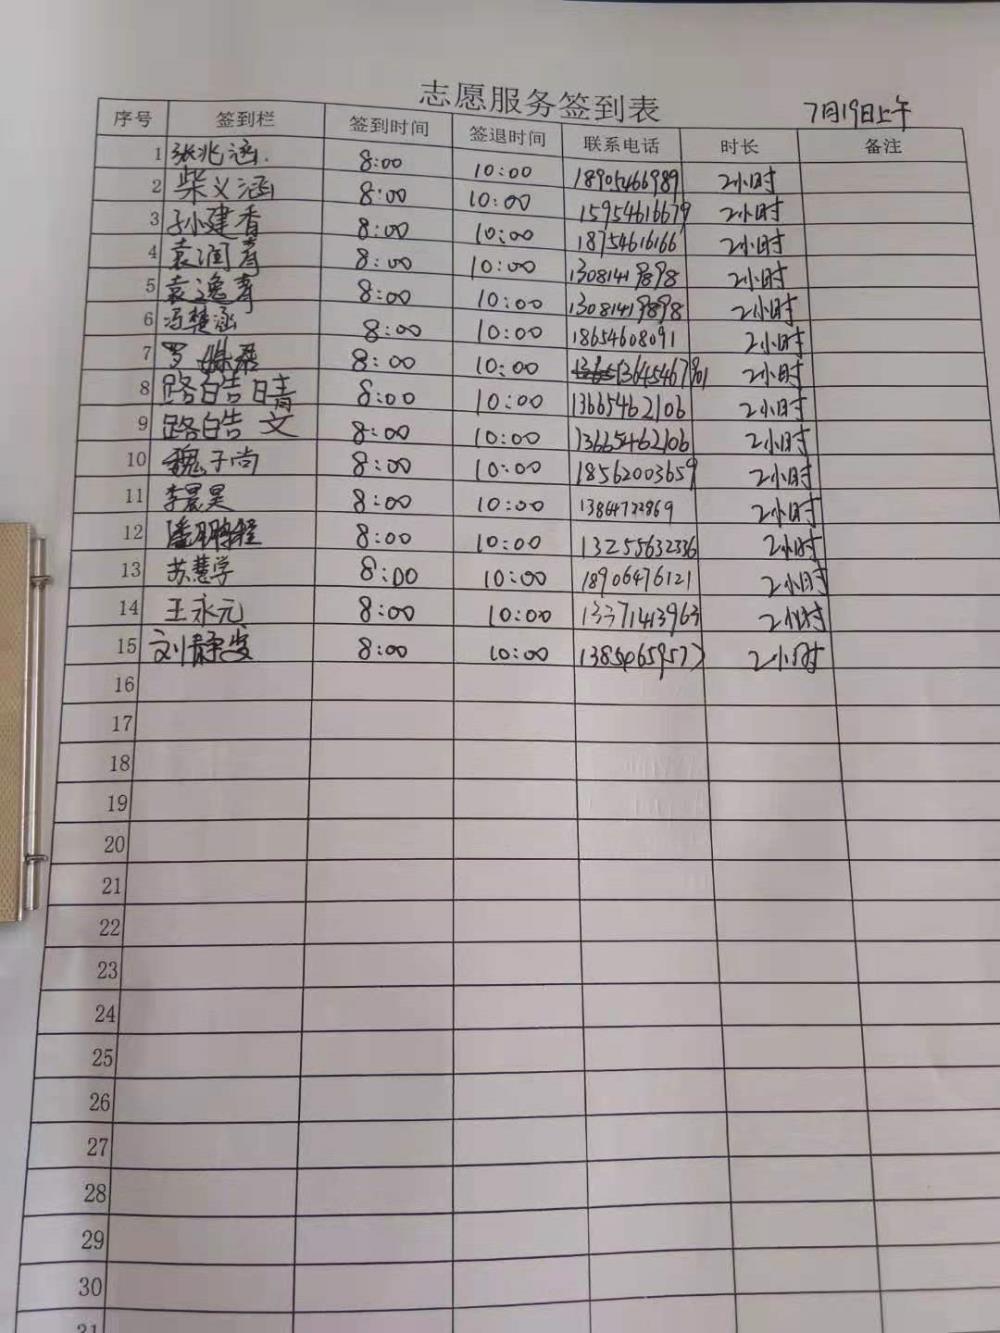 志愿服务签到表
7月19日上午
序号 签到栏 签到时间 签退时间 联系电话 时长 备注
1 张兆涵. 8:00 10:00 18905466989 2小时
2 柴义涵 8:00 10:00 15954616679 2小时
3 孙建香 8:00 10:00 18754616166 2小时
4 袁润春 8:00 10:00 13081419898 2小时
5 袁逸春 8:00 10:00 13081419898 2小时
6 冯楚涵 8:00 10:00 18654608091 2小时
7 罗 8:00 10:00 13645467901 2小时
8 路皓晴 8:00 10:00 13665462106 2小时
9 路皓文 8:00 10:00 13665462106 2小时
10 魏子尚 8:00 10:00 18562003659 2小时
11 李晨昊 8:00 10:00 13864722869 2小时
12 潘鹏程 8:00 10:00 13255632336 2小时
13 苏慧学 8:00 10:00 18906476121 2小时
14 王永元 8:00 10:00 13371413963 2小时
15 刘静雯 8:00 10:00 13854659577 2小时
16
17
18
19
20
21
22
23
24
25
26
27
28
29
30
31